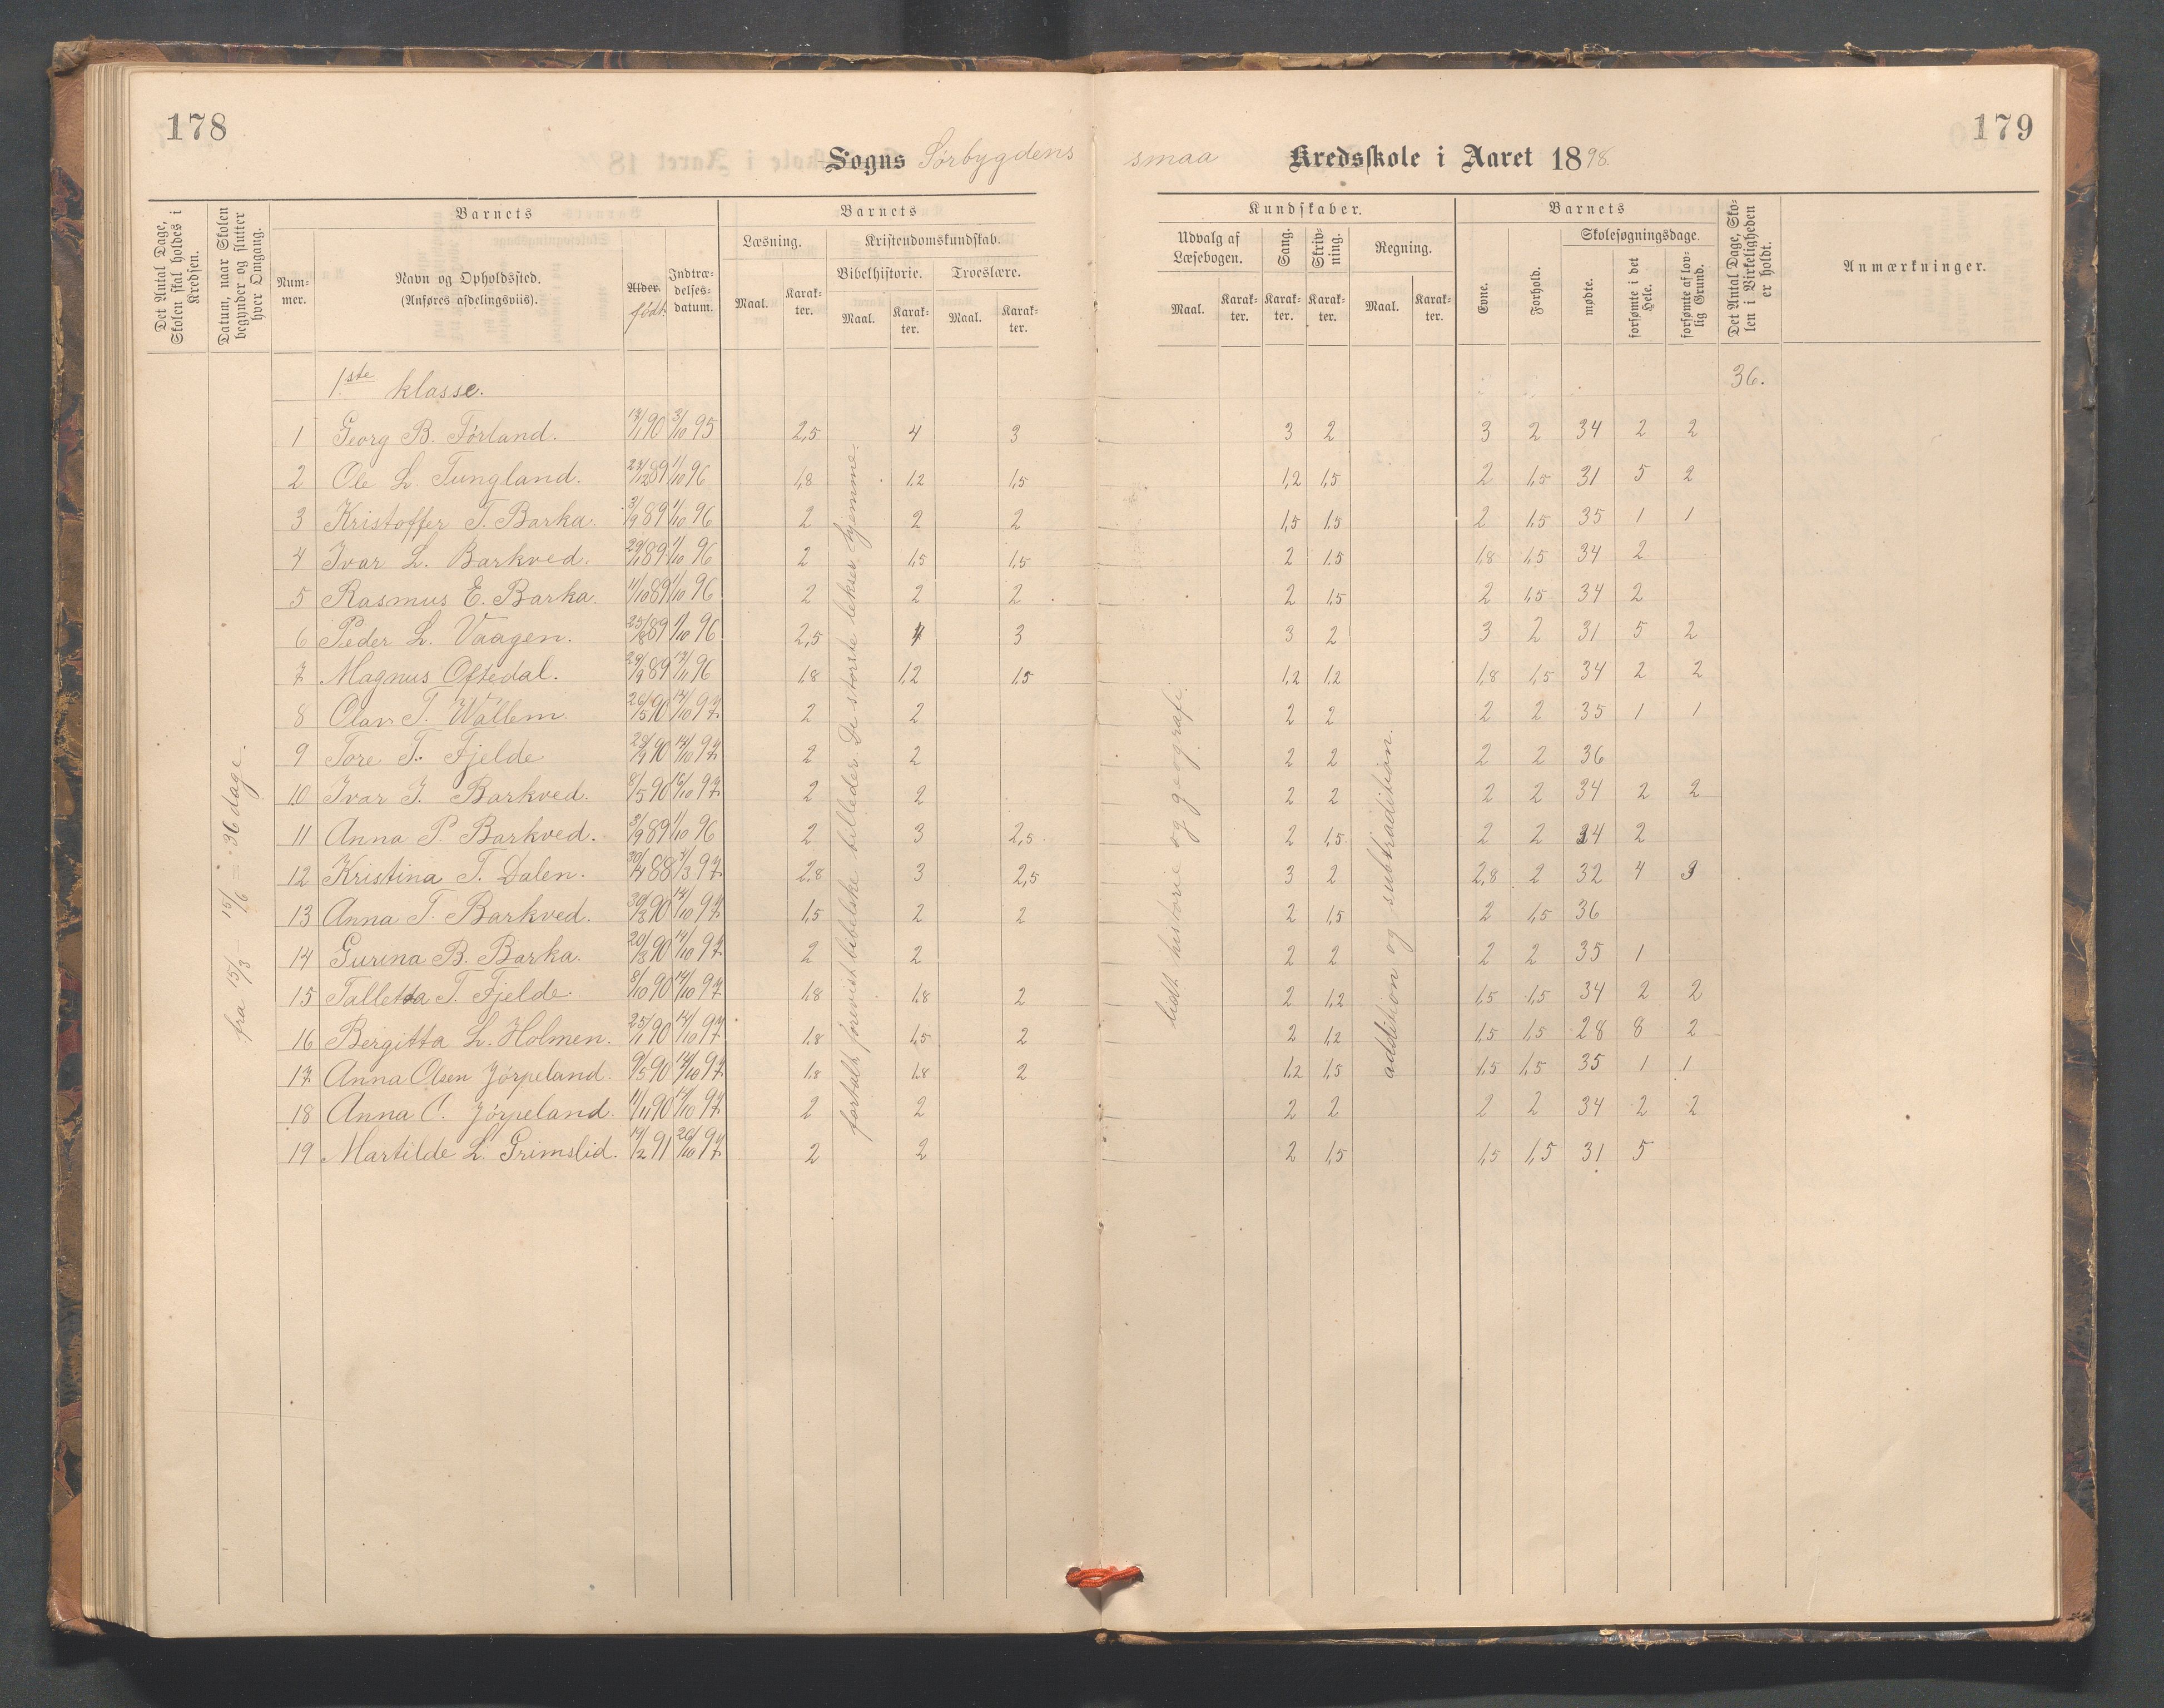 178
179
Sogns Sørbygdens smaa Kredsskole i Aaret 1898.
Det Antal Dage, Skolen skal holdes i Kredsen.
Datum, naar Skolen begynder og slutter hver Omgang.
Barnets
Num-
mer.
Navn og Opholdssted.
(Anføres afdelingsviis).
Alder.
født.
Indtræ-
delses-
datum.
Barnets
Læsning.
Maal.
Karak-
ter.
Kristendomskundskab.
Bibelhistorie.
Maal.
Karak-
ter.
Troeslære.
Maal.
Karak-
ter.
Kundskaber.
Udvalg af
Læsebogen.
Maal.
Karak-
ter.
Sang.
Karak-
ter.
Skriv-
ning.
Karak-
ter.
Regning.
Maal.
Karak-
ter.
Barnets
Evne.
Forhold.
Skolesøgningsdage.
mødte.
forsømte i det Hele.
forsømte af lov-
lig Grund.
Det Antal Dage, Sko-
len i Virkeligheden
er holdt.
Anmærkninger.
1.ste klasse. 36.
1 Georg B. Førland. 13/1 90 3/10 95 2,5 4 3 3 2 3 2 34 2 2
2 Ole L. Tungland. 23/12 89 1/10 96 1,8 1,2 1,5 1,2 1,5 2 1,5 31 5 2
3 Kristoffer T. Barka. 3/9 89 1/10 96 2 2 2 1,5 1,5 2 1,5 35 1 1
4 Ivar L. Barkved. 29/1 89 1/10 96 2 1,5 1,5 2 1,5 1,8 1,5 34 2
5 Rasmus E. Barka. 11/10 89 1/10 96 2 2 2 2 1,5 2 1,5 34 2
6 Peder L. Vaagen. 25/8 89 1/10 96 2,5 4 3 3 2 3 2 31 5 2
7 Magnus Oftedal. 29/9 89 13/11 96 1,8 1,2 1,5 1,2 1,2 1,8 1,5 34 2 2
8 Olav T. Wallem. 26/5 90 14/10 97 2 2 2 2 2 2 35 1 1
9 Tore T. Fjelde 29/9 90 14/10 97 2 2 2 2 2 2 36
10 Ivar J. Barkved. 8/5 90 16/10 97 2 2 2 2 2 2 34 2 2
11 Anna P. Barkved. 3/9 89 1/10 96 2 3 2,5 2 1,5 2 2 34 2
12 Kristina T. Dalen. 30/4 88 4/3 97 2,8 3 2,5 3 2 2,8 2 32 4 3
13 Anna T. Barkved. 30/3 90 14/10 97 1,5 2 2 2 1,5 2 1,5 36
14 Gurina B. Barka. 20/3 90 14/10 97 2 2 2 2 2 2 35 1
15 Talletta T. Fjelde. 8/10 90 14/10 97 1,8 1,8 2 2 1,2 1,5 1,5 34 2 2
16 Bergitta L. Holmen. 25/1 90 14/10 97 1,8 1,5 2 2 1,2 1,5 1,5 28 8 2
17 Anna Olsen Jørpeland. 9/5 90 14/10 97 1,8 1,8 2 1,2 1,5 1,5 1,5 35 1 1
18 Anna O. Jørpeland. 11/11 90 14/10 97 2 2 2 2 2 2 34 2 2
19 Martilde L. Grimslid. 19/2 91 26/10 97 2 2 2 1,5 1,5 1,5 31 5
fra 15/3 — 15/6 = 36 dage.
fortalt, forevist bibelske billeder. De største lekser hjemme.
lidt historie og geografi.
addition og subtradition.